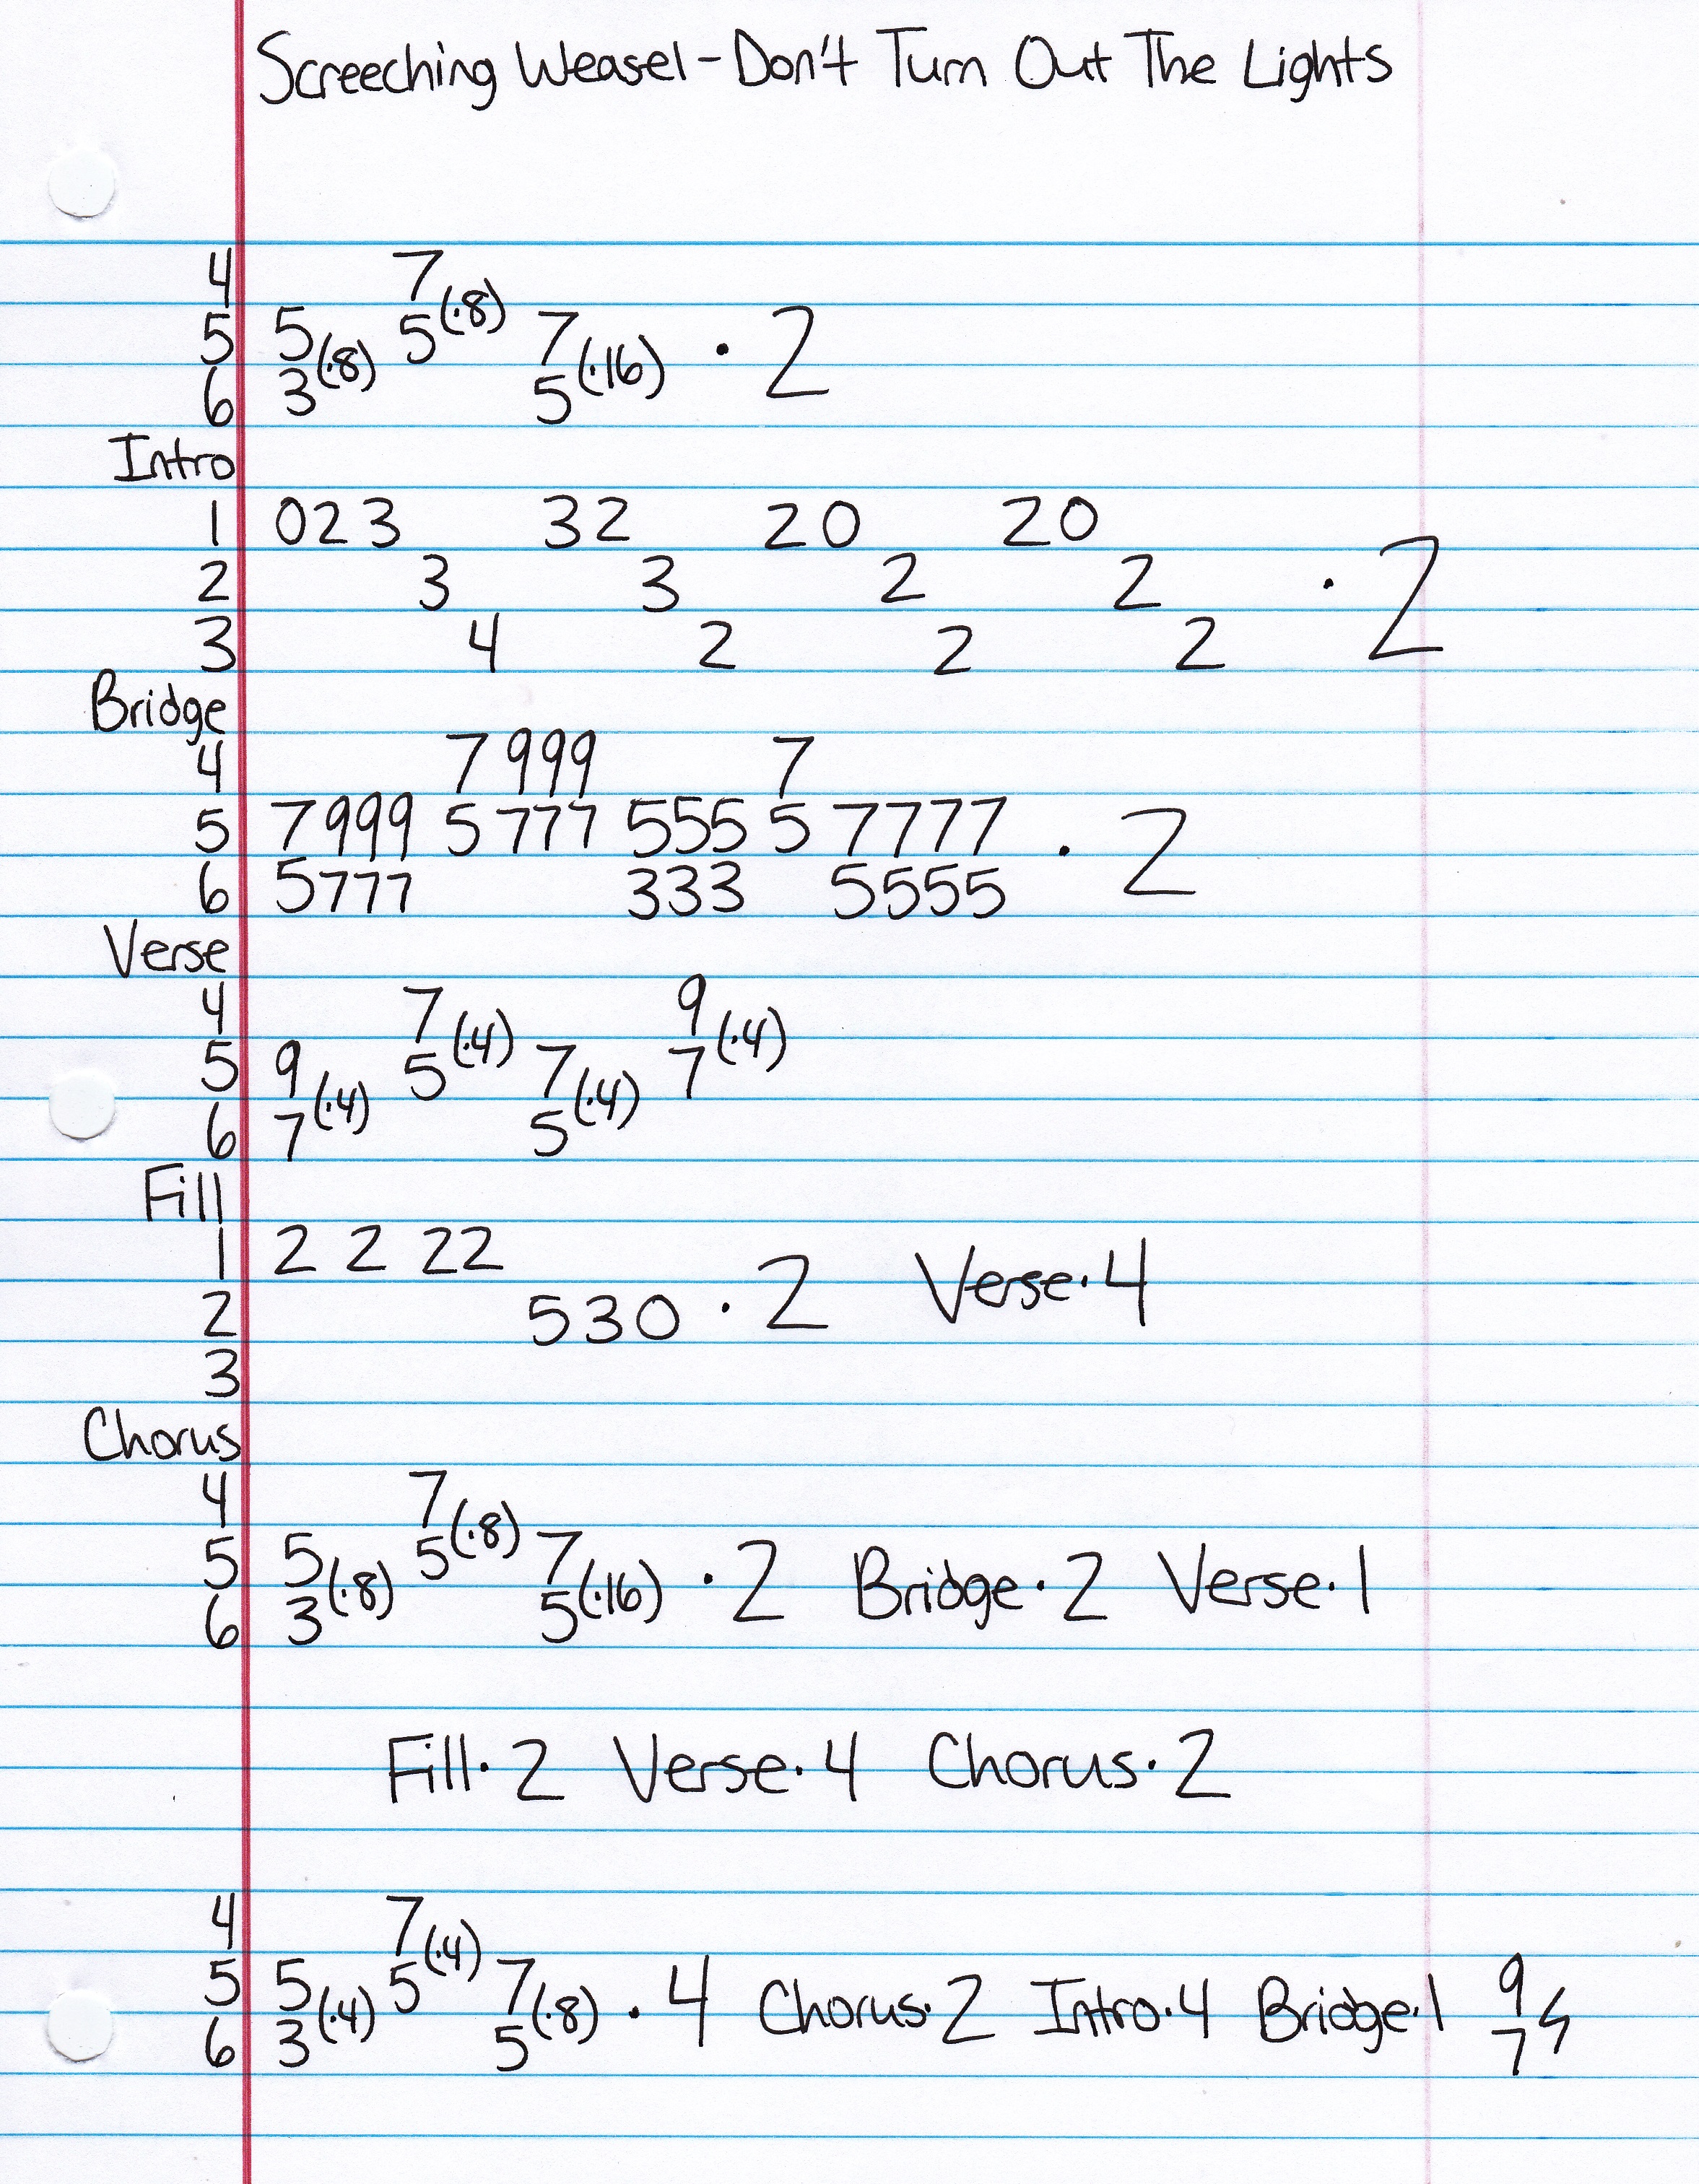 Screeching Weasel - Don't Turn Out The Lights
4 7
5 5(·8) 5(·8) 7(·16) · 2
6 3 5
Intro
1 023 32 20 20
2 3 3 2 2 · 2
3 4 2 2 2
Bridge
4 7 999 7
5 7999 5777 555 5 7777 · 2
6 5777 333 5555
Verse
4 7 9
5 9(·4) 5(·4) 7(·4) 7(·4)
6 7 5
Fill
1 2 2 22
2 530 · 2 Verse·4
3
Chorus
4 7
5 5(·8) 5(·8) 7(·16) · 2 Bridge·2 Verse·1
6 3 5
Fill·2 Verse·4 Chorus·2
4 7
5 5(·4) 5(·4) 7(·8) · 4 Chorus·2 Intro·4 Bridge·1 9
6 3 5 7